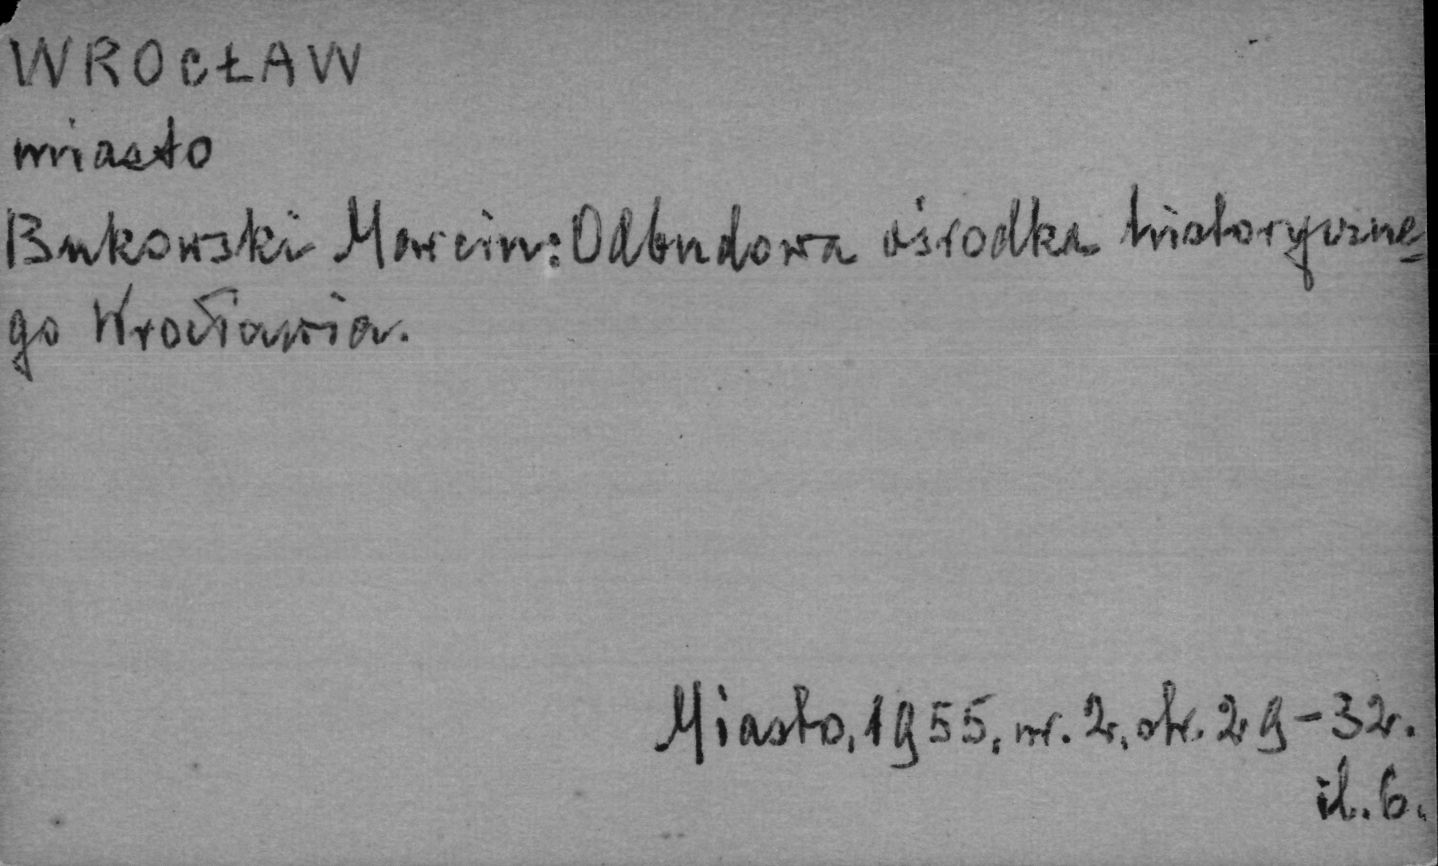 WROCŁAW
miasto
Bukowski Marcin: Odbudowa ośrodka historyczne-
go Wrocławia.
Miasto, 1955, nr. 2, str. 29-32.
il. 6.